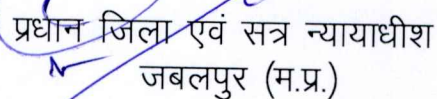 प्रधान जिला एवं सत्र न्यायाधीश
जबलपुर (म.प्र.)